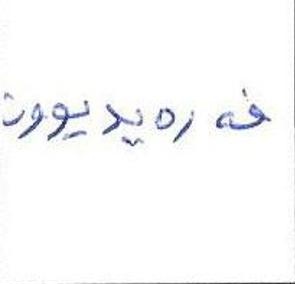 فەرەیدیوون